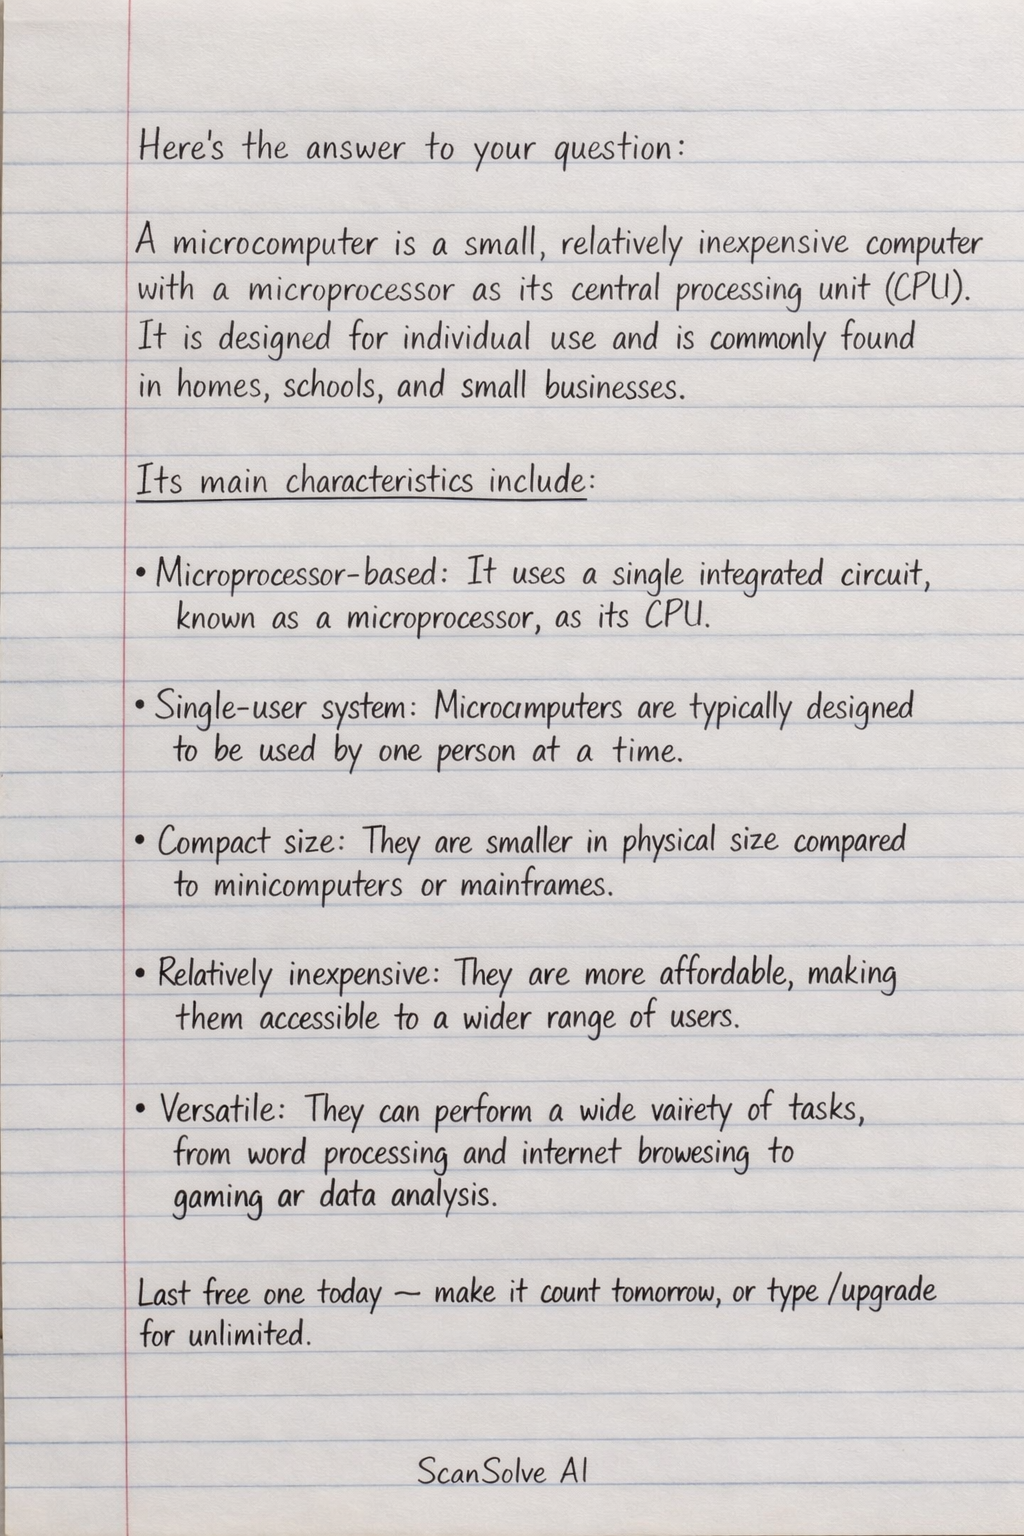 Here's the answer to your question:
A microcomputer is a small, relatively inexpensive computer
with a microprocessor as its central processing unit (CPU).
It is designed for individual use and is commonly found
in homes, schools, and small businesses.
Its main characteristics include:
• Microprocessor-based: It uses a single integrated circuit,
known as a microprocessor, as its CPU.
• Single-user system: Microcımputers are typically designed
to be used by one person at a time.
• Compact size: They are smaller in physical size compared
to minicomputers or mainframes.
• Relatively inexpensive: They are more affordable, making
them accessible to a wider range of users.
• Versatile: They can perform a wide vairety of tasks,
from word processing and internet browesing to
gaming ar data analysis.
Last free one today — make it count tomorrow, or type /upgrade
for unlimited.
ScanSolve AI